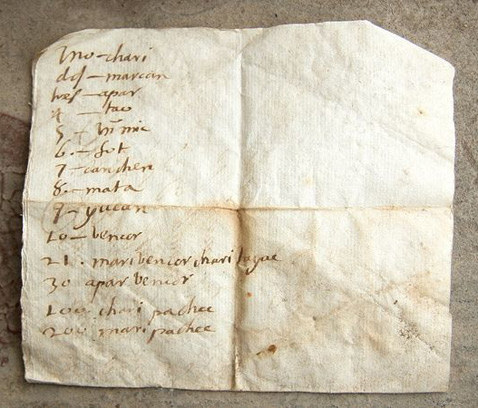 Uno - chari
dos - marcan
tres - apar
4 - tao
5 - himic
6. - sut
7 - canchen
8. - mata
9 - yucan
10 - bencor
21. maribencor chari tayac
30 apar bencor
100 chari pachac
200 mari pachac